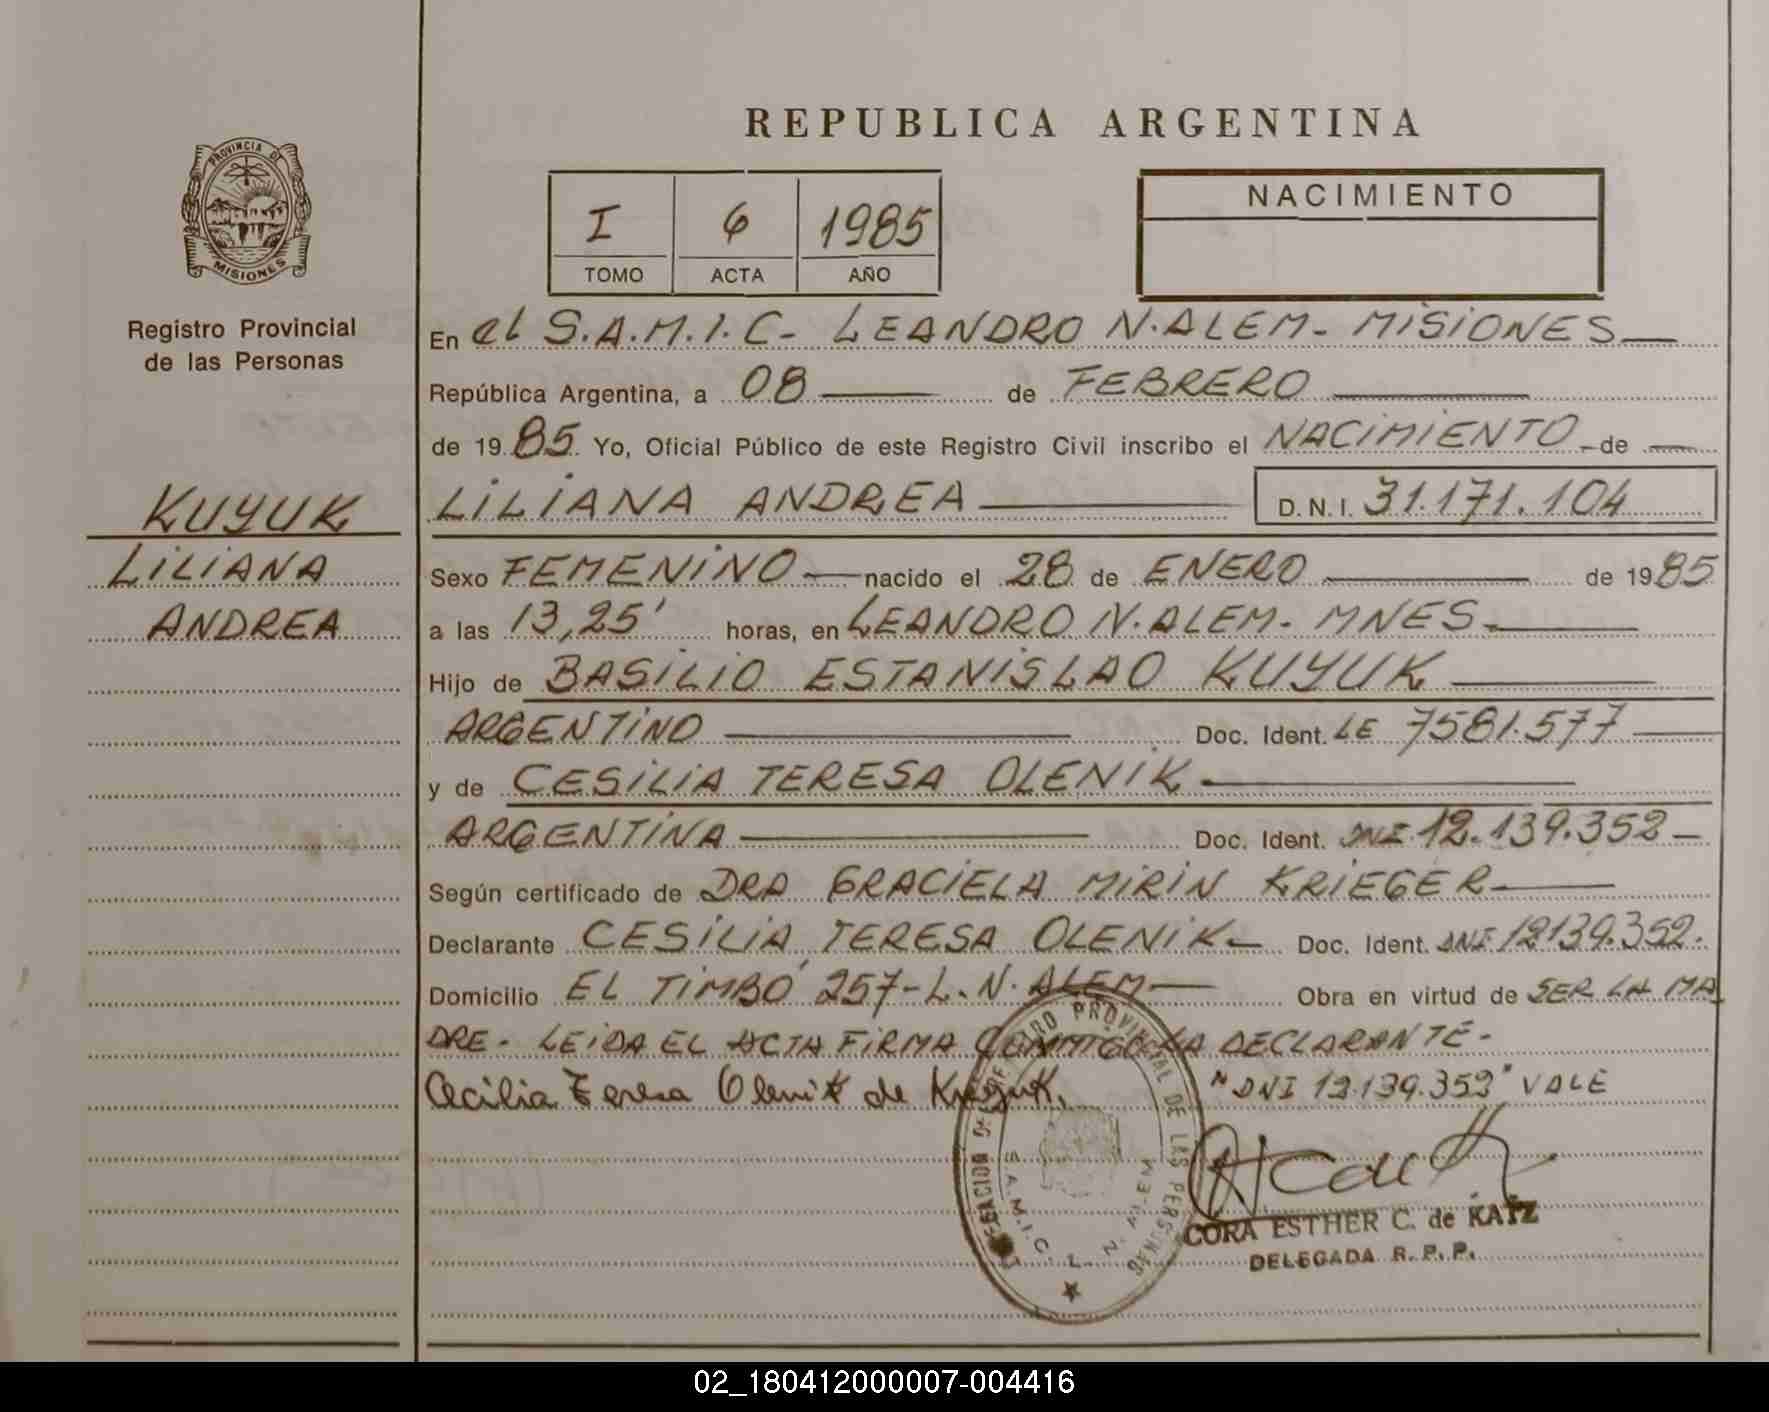 REPUBLICA ARGENTINA
PROVINCIA DE
MISIONES
Registro Provincial
de las Personas
KUYUK
LILIANA
ANDREA
I 6 1985
TOMO ACTA AÑO
NACIMIENTO
En el S.A.M.I.C- LEANDRO N.ALEM- MISIONES
República Argentina, a 08 de FEBRERO
de 1985 Yo, Oficial Público de este Registro Civil inscribo el NACIMIENTO de
LILIANA ANDREA D.N.I. 31.171.104
Sexo FEMENINO nacido el 28 de ENERO de 1985
a las 13,25' horas, en LEANDRO N.ALEM- MNES-
Hijo de BASILIO ESTANISLAO KUYUK
ARGENTINO Doc. Ident. LE 7581.577
y de CESILIA TERESA OLENIK
ARGENTINA Doc. Ident. DNI 12.139.352
Según certificado de DRA GRACIELA MIRIN KRIEGER
Declarante CESILIA TERESA OLENIK Doc. Ident. DNI 12139.352.
Domicilio EL TIMBÓ 257-L.N.ALEM Obra en virtud de SER LA MA
DRE- LEIDA EL ACTA FIRMA CONMIGO LA DECLARANTE-
Cecilia Teresa Olenik de Kuyuk. "DNI 12.139.352" VALE
DELEGACION DEL REGISTRO PROVINCIAL DE LAS PERSONAS
S.A.M.I.C. L. N. ALEM
CORA ESTHER C. de KATZ
DELEGADA R.P.P.
02_180412000007-004416